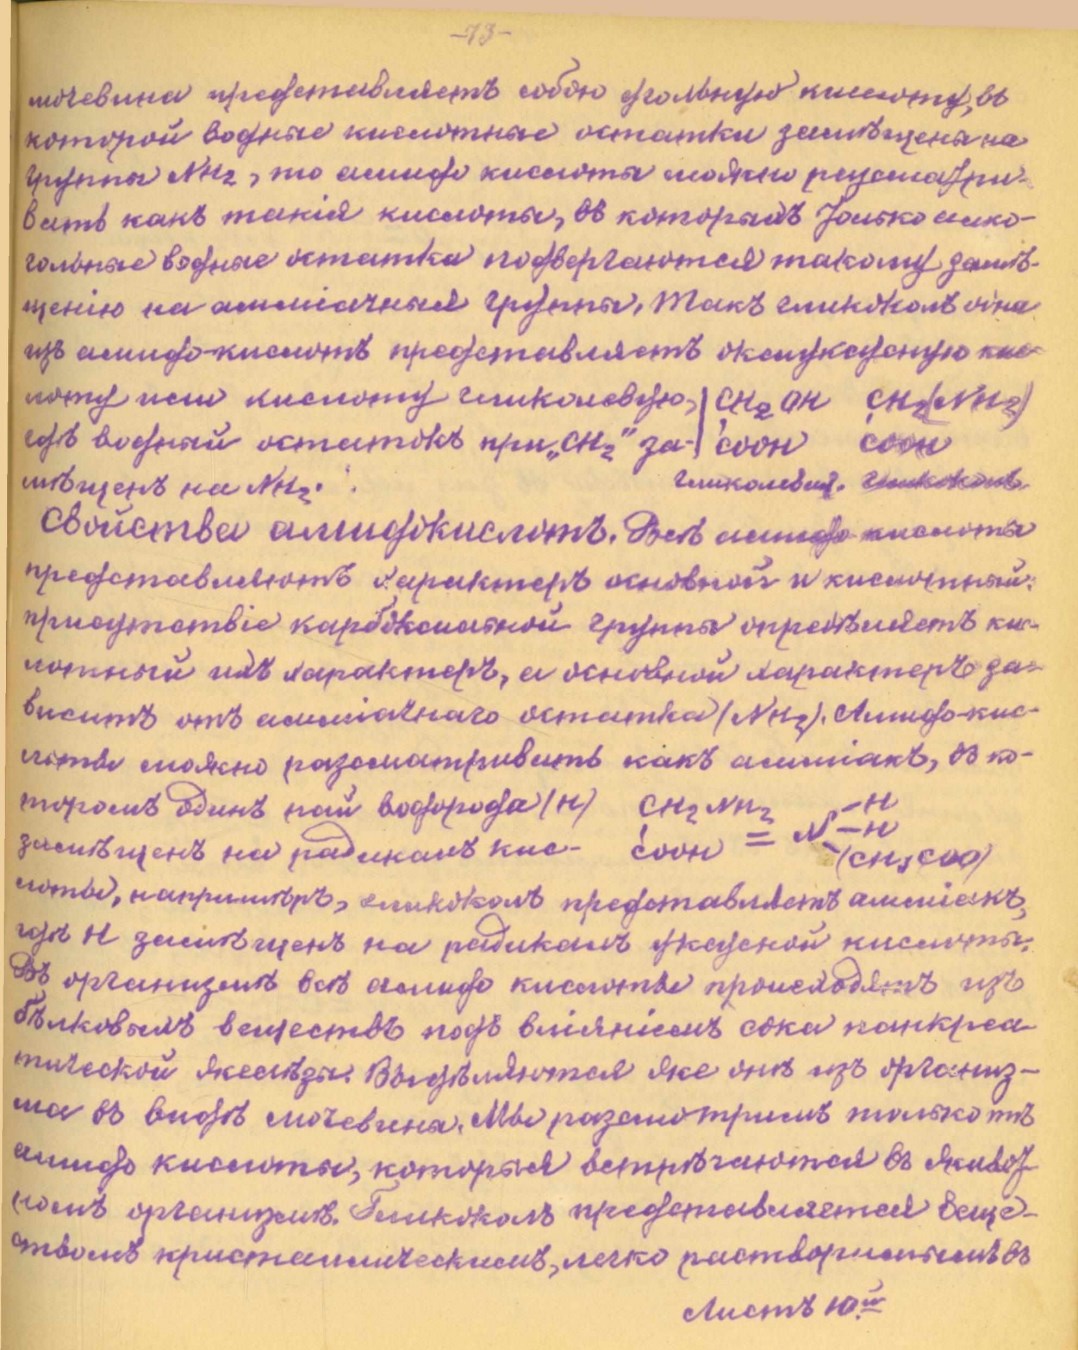 -73-
мочевина представляетъ собою угольную кислоту, въ
которой водные кислотные остатки замѣщены на
группы NH2, то амидо кислоты можно разсматри-
вать какъ такія кислоты, въ которыхъ только алко-
гольные водные остатки подвергаются такому замѣ-
щенію на амміачныя группы. Такъ гликоколъ одна
изъ амидо-кислотъ представляетъ оксиуксусную кис-
лоту или кислоту гликолевую, CH2 OH CH2(NH2)
гдѣ водный остатокъ при „CH2" за- COOH COOH
мѣщенъ на NH2. гликолевая. гликоколъ
Свойства амидокислотъ. Всѣ амидо кислоты
представляютъ характеръ основной и кислотный:
присутствіе карбоксильной группы опредѣляетъ кис-
лотный ихъ характеръ, а основной характеръ за-
виситъ отъ амміачнаго остатка (NH2). Амидо-кис-
лоты можно разсматривать какъ амміакъ, въ ко-
торомъ одинъ пай водорода (H) CH2 NH2 = N -H -H
замѣщенъ на радикалъ кис- COOH (CH3COO)
лоты, напримѣръ, гликоколъ представляетъ амміакъ,
гдѣ H замѣщенъ на радикалъ уксусной кислоты.
Въ организмѣ всѣ амидо кислоты происходятъ изъ
бѣлковыхъ веществъ подъ вліяніемъ сока панкреа
тической железы. Выдѣляются же онѣ изъ организ-
ма въ видѣ мочевины. Мы разсмотримъ только тѣ
амидо кислоты, которыя встрѣчаются въ живот
номъ организмѣ. Гликоколъ представляется веще-
ствомъ кристаллическимъ, легко растворимымъ въ
Листъ 10й